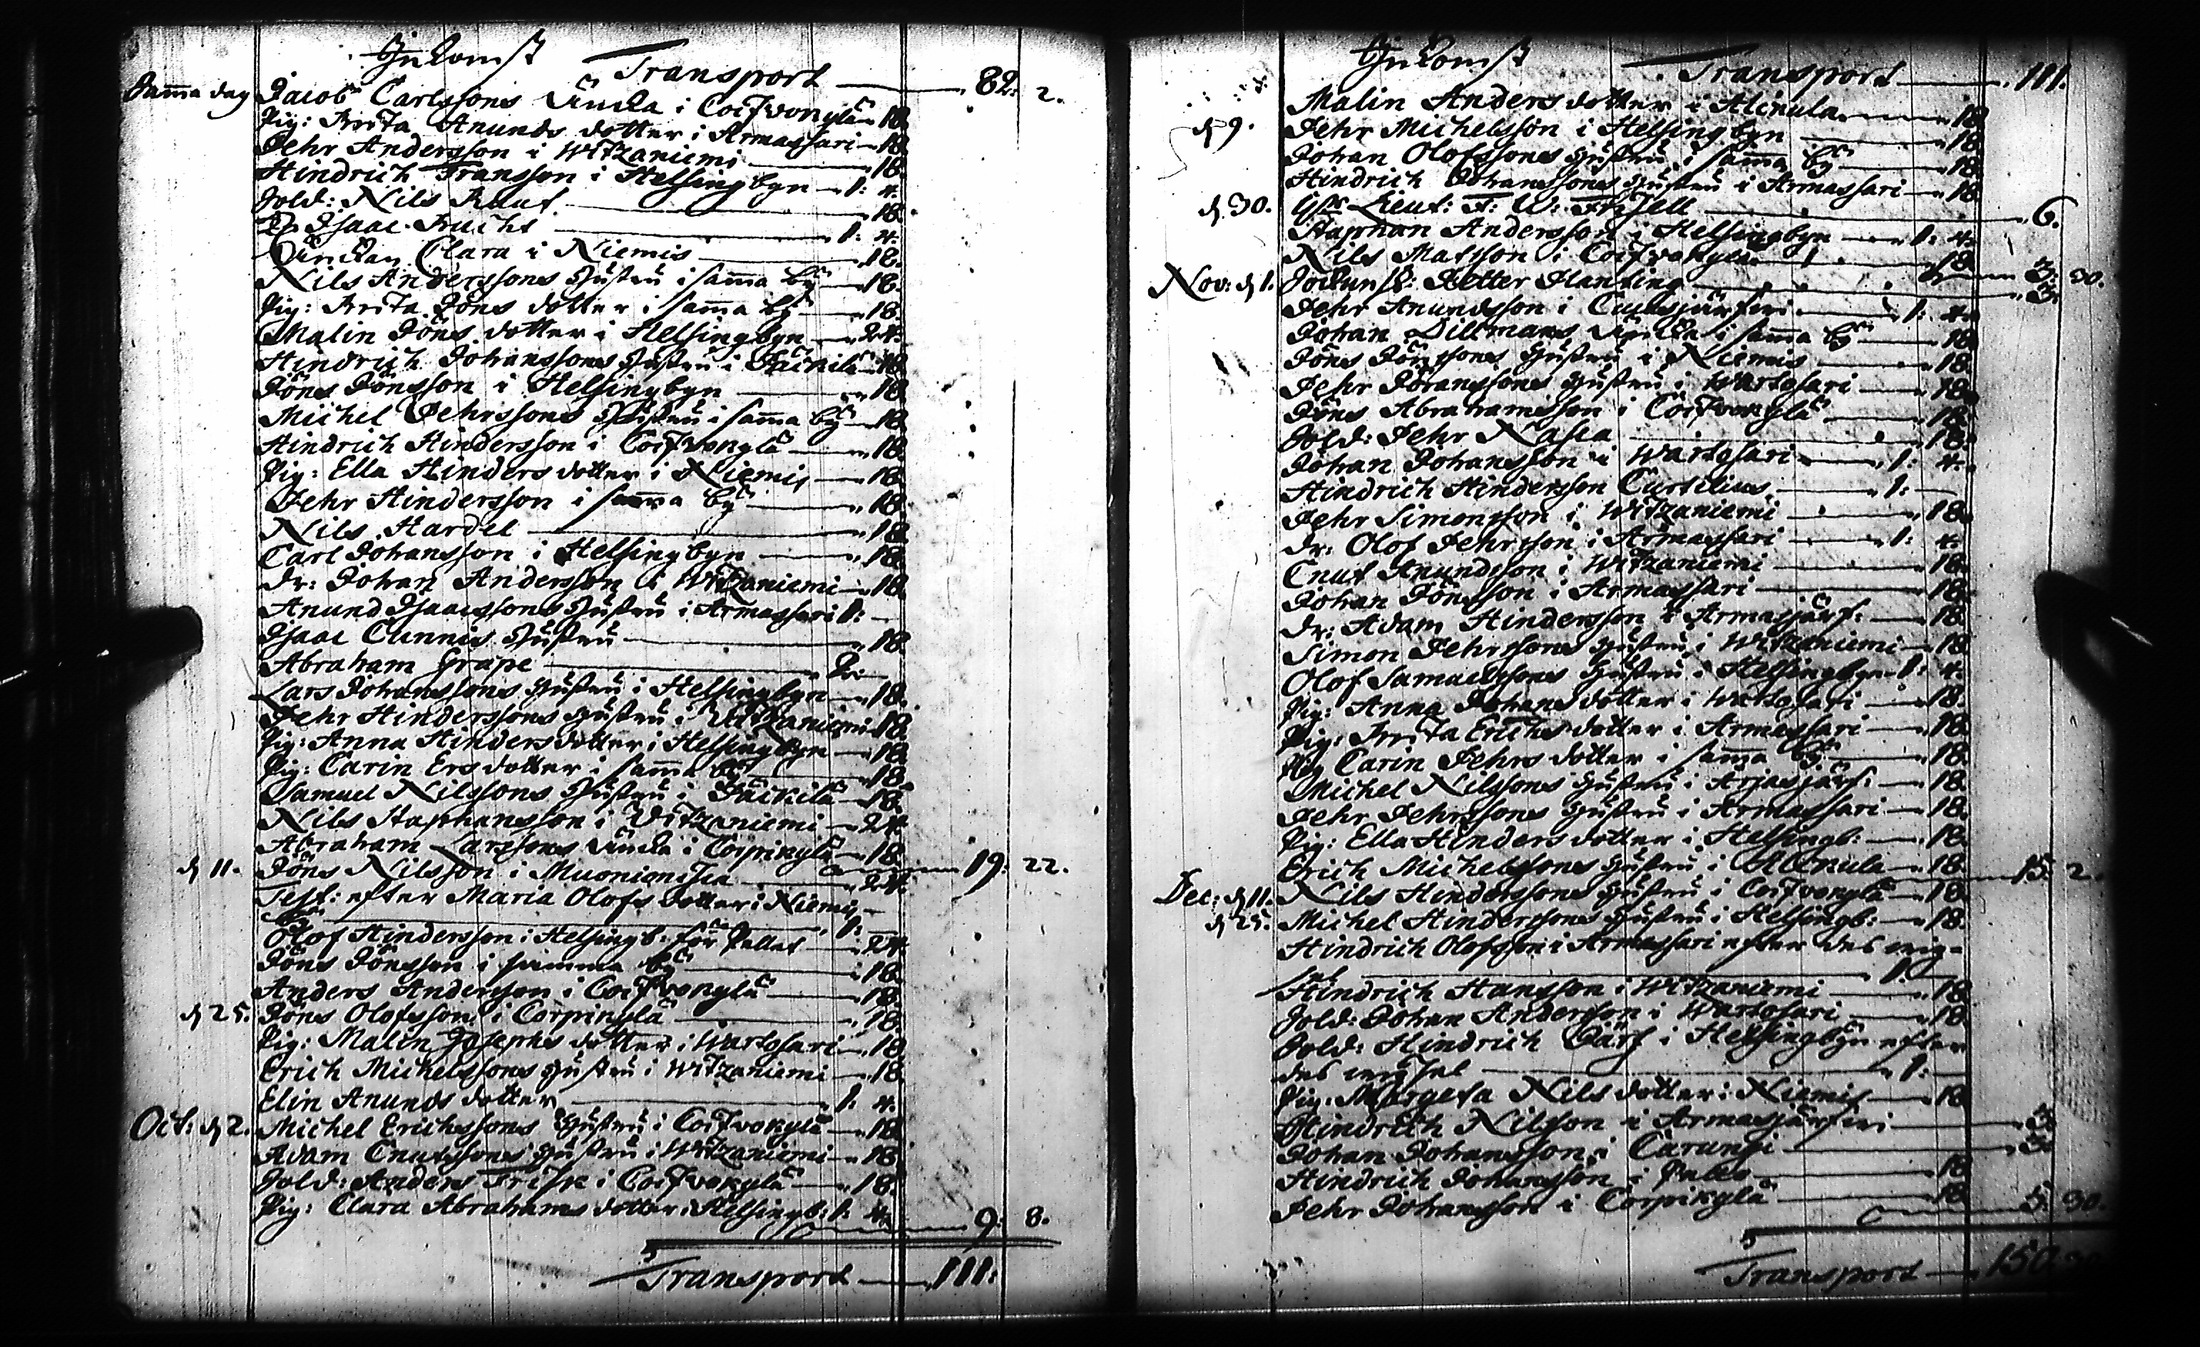 Inkomst
Transport 82: 2.
Samma dag Jacob Carlssons Encka i Coifvonkylä 18.
Pig: Brita Anunds dotter i Armassari 18.
Pehr Andersson i Witzaniemi 18.
Hindrich Fransson i Helsingbyn 1: 4.
Sold: Nils Ruut 18.
D:o Isaac Frucht 1: 4.
Enckan Clara i Niemis 12.
Nils Anderssons Hustru i samma by 18.
Pig: Brita Jöns dotter i samma by 18.
Malin Jöns dotter i Helsingbyn 24.
Hindrich Johanssons Hustru i Päckilä 18.
Jöns Jönsson i Helsingbyn 18.
Michel Pehrssons Hustru i samma by 18.
Hindrich Hindersson i Coifvonkylä 18.
Pig: Ella Hinders dotter i Niemis 18.
Pehr Hindersson i samma by 18.
Nils Hardel 18.
Carl Johansson i Helsingbyn 18.
Dr: Johan Andersson i Witzaniemi 18.
Anund Isaacssons Hustru i Armassari 1:
Isaac Cunnis Hustru 18.
Abraham Grape 2:
Lars Johanssons Hustru i Helsingbyn 18.
Pehr Hinderssons Hustru i Vitzaniemi 18.
Pig: Anna Hinders dotter i Helsingbyn 18.
Pig: Carin Ers dotter i samma by 18.
Samuel Nilssons Hustru i Päckilä 18.
Nils Staphansson i Vitzaniemi 24.
Abraham Larssons Encka i Corpikylä 18. 19: 22.
d 11. Jöns Nilsson i Muonionisca 24.
Test: efter Maria Olofs dotter i Niemis
by 1:
Olof Hindersson i Helsingb: för Pallet 24.
Jöns Jönsson i samma by 18.
Anders Andersson i Coifvonkylä 18.
d 25. Jöns Olofsson i Corpikylä 18.
Pig: Malin Josephs dotter i Wartosari 18.
Erich Michelssons Hustru i Witzaniemi 18.
Elin Anunds dotter 1: 4.
Oct: d 2. Michel Erichssons Hustru i Coifvonkylä 18.
Adam Cnutssons Hustru i Witzaniemi 18.
Sold: Anders Frisk i Coifvonkylä 18.
Pig: Clara Abrahams dotter i Helsingb: 1: 4. 9: 8.
Transport 111:
Inkomst
Transport 111.
Malin Anders dotter i Alcnula 18.
d 9. Pehr Michelsson i Helsingbyn 18.
Johan Olofssons Hustru i samma by 18.
Hindrich Johanssons Hustru i Armassari 18.
d 30. H:r Lieut: F: W: Frisell 6.
Staphan Andersson i Helsingbyn 1: 4.
Nils Matsson i Coifvonkylä 18. 3: 30.
Nov: d 1. Petter Planting 3.
Pehr Anundsson i 1: 4.
Johan Dillmans Encka i samma by 18.
Jöns Jönssons Hustru i Niemis 18.
Pehr Jöranssons Hustru i Wartosari 18.
Jöns Abrahamsson i Coifvonkylä 18.
Sold: Pehr Nasca 18.
Johan Johansson i Wartosari 1: 4.
Hindrich Hindersson Curtelius 1:
Pehr Simonsson i Witzaniemi 18.
Dr: Olof Pehrsson i Armassari 1: 4.
Cnut Anundsson i Witzaniemi 18.
Johan Jönsson i Armassari 18.
Dr: Adam Hindersson i Armasjärf: 18.
Simon Pehrssons Hustru i Witzaniemi 18.
Olof Samuelssons Hustru i Helsingbyn 1: 4.
Pig: Anna Johans dotter i Wartosari 18.
Pig: Brita Erichs dotter i Armassari 18.
Pig: Carin Pehrs dotter i samma by 18.
Michel Nilssons Hustru i Armasjärf: 18.
Pehr Pehrssons Hustru i Armassari 18.
Pig: Ella Hinders dotter i Helsingb: 18.
Erich Michelssons Hustru i Alcnula 18. 15: 2.
Dec: d 11. Nils Hinderssons Hustru i Coifvonkylä 18.
d 25. Michel Hinderssons Hustru i Helsingb: 18.
Hindrich Olofsson i Armassari efter des
1:
Hindrich Hansson i Witzaniemi 18.
Sold: Johan Andersson i Wartosari 18.
Sold: Hindrich Pärf i Helsingbyn efter
des 1:
Pig: Margeta Nils dotter i Niemis 18.
Hindrich Nilsson i Armasjärfwi 3.
Johan Johansson i Carungi 3.
Hindrich Johansson i Pello 18.
Pehr Johansson i Corpikylä 18. 5: 30.
Transport 150